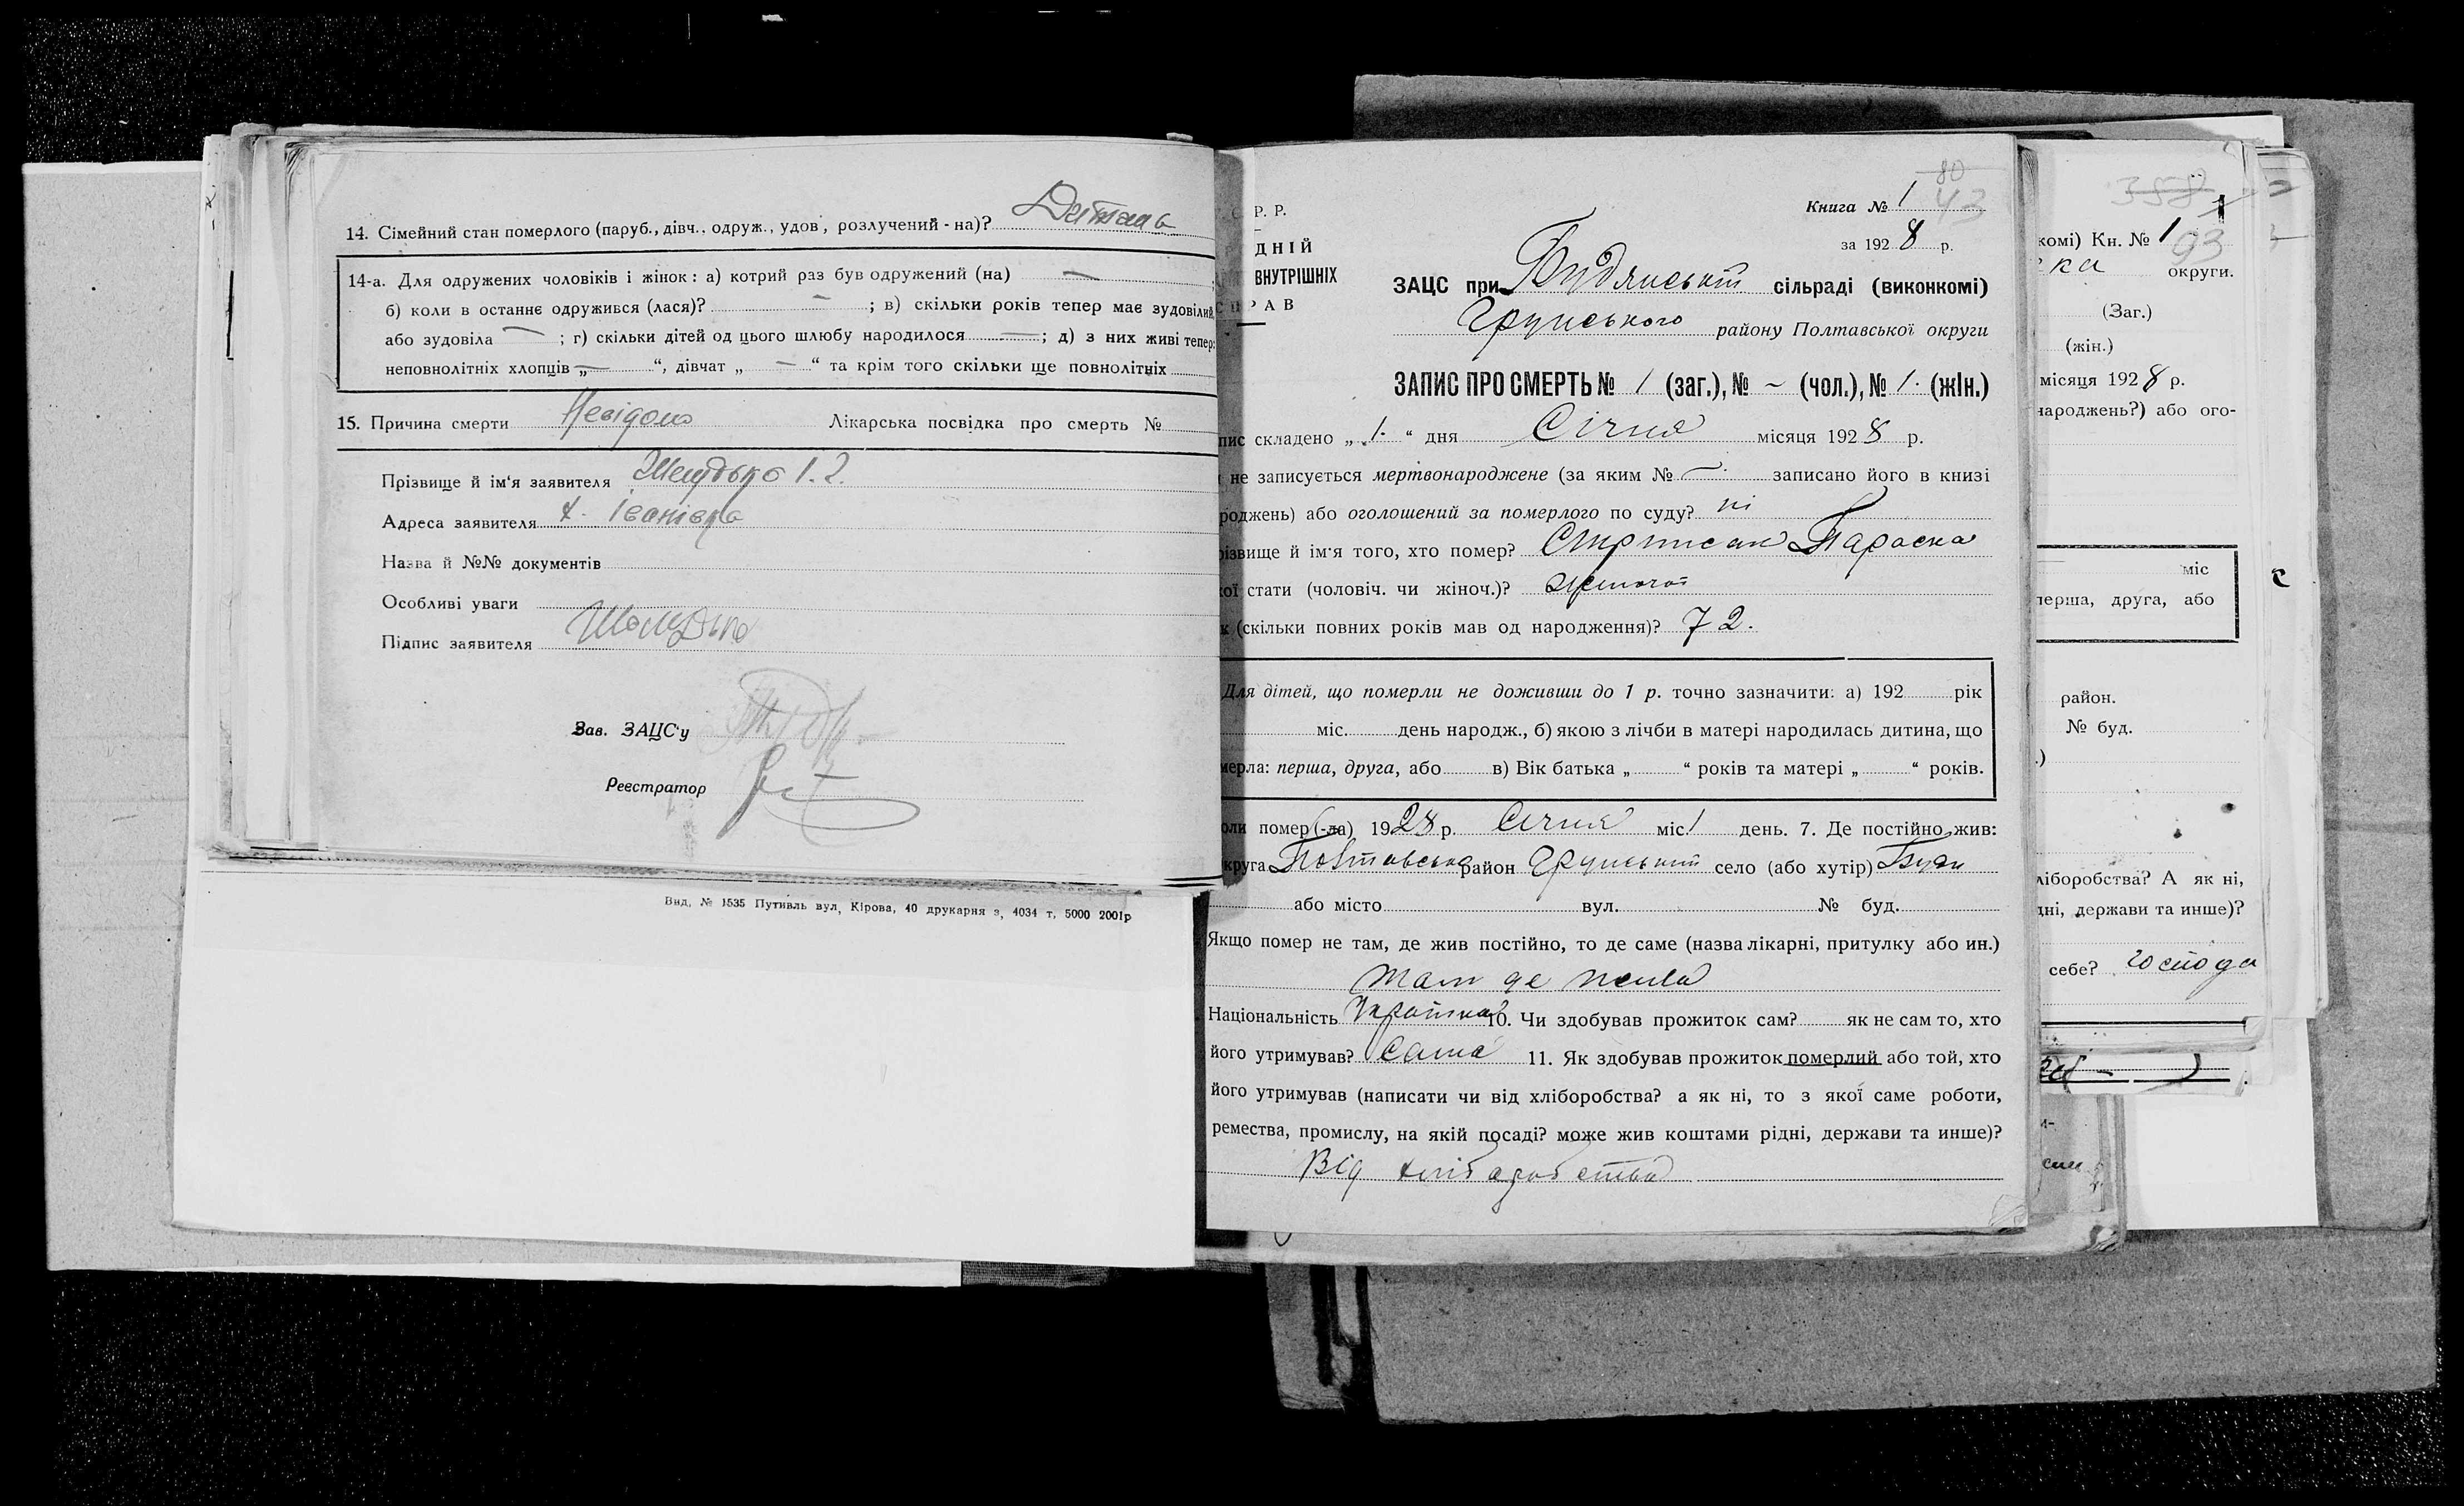 14. Сімейний стан померлого (паруб., дівч., одруж., удов, розлучений - на)? Дитина
14-а. Для одружених чоловіків і жінок: а) котрий раз був одружений (на) —
б) коли в останнє одружився (лася)? — ; в) скільки років тепер має зудовілий
або зудовіла — ; г) скільки дітей од цього шлюбу народилося — ; д) з них живі тепер:
неповнолітніх хлопців „ — “, дівчат „ — “ та крім того скільки ще повнолітніх
15. Причина смерти Невідомо Лікарська посвідка про смерть №
Прізвище й ім'я заявителя
Адреса заявителя х. Іванівка
Назва й №№ документів
Особливі уваги
Підпис заявителя
Зав. ЗАЦС'у
Реєстратор
Вид. № 1535 Путивль вул, Кірова, 40 друкарня з, 4034 т, 5000 2001р
Р. Р.
ДНІЙ
ВНУТРІШНІХ
СПРАВ
80
43
Книга № 1
за 1928 р.
ЗАЦС при Будянській сільраді (виконкомі)
Грунського району Полтавської округи
ЗАПИС ПРО СМЕРТЬ № 1 (заг.), № – (чол.), № 1. (жін.)
пис складено „ 1. “ дня Січня місяця 1928 р.
не записується мертвонароджене (за яким № — записано його в книзі
роджень) або оголошений за померлого по суду? ні
ізвище й ім'я того, хто помер? Параска
ої стати (чоловіч. чи жіноч.)? жіночої
к (скільки повних років мав од народження)? 72.
Для дітей, що померли не доживши до 1 р. точно зазначити: а) 192 рік
міс. день народж., б) якою з лічби в матері народилась дитина, що
мерла: перша, друга, або в) Вік батька „ “ років та матері „ “ років.
оли помер (-ла) 1928 р. Січня міс 1 день. 7. Де постійно жив:
круга Полтавська район Грунський село (або хутір) Буди
або місто вул. № буд.
Якщо помер не там, де жив постійно, то де саме (назва лікарні, притулку або ин.)
там де жила
Національність Українка 10. Чи здобував прожиток сам? як не сам то, хто
його утримував? сама 11. Як здобував прожиток померлий або той, хто
його утримував (написати чи від хліборобства? а як ні, то з якої саме роботи,
ремества, промислу, на якій посаді? може жив коштами рідні, держави та инше)?
Від хліборобства
358
1
93
комі) Кн. № 1
ка округи.
(Заг.)
(жін.)
місяця 1928 р.
народжень?) або ого-
міс
перша, друга, або
район.
№ буд.
.)
ліборобства? А як ні,
дні, держави та инше)?
себе? господа